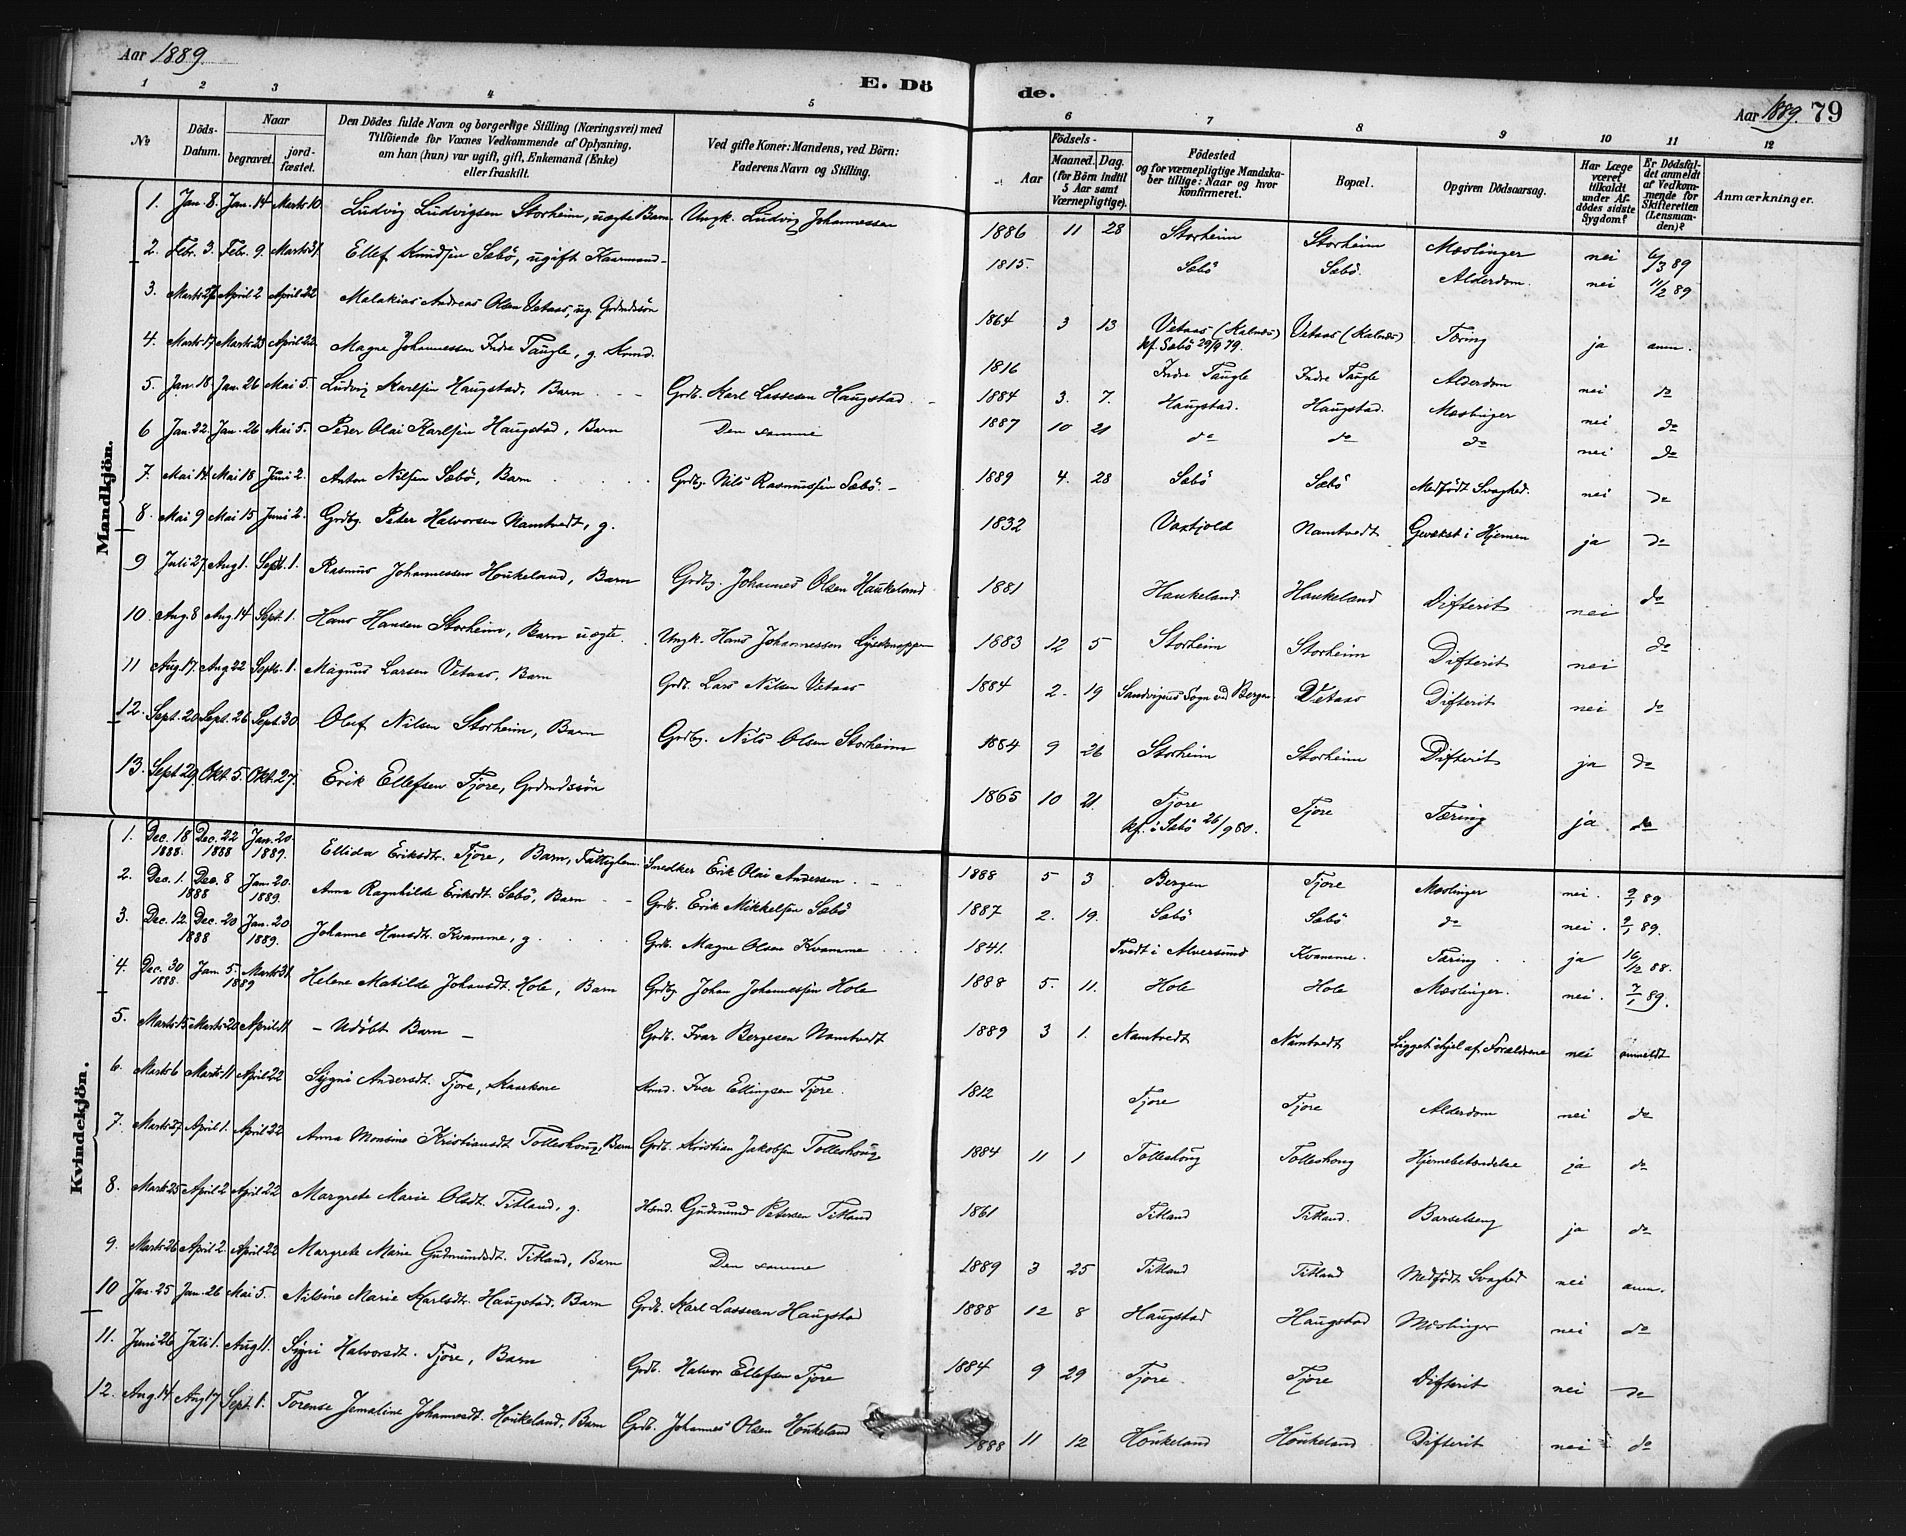 Aar 1889. E. Döde. Aar 1889. 79
1 2 3 4 5 6 7 8 9 10 11 12
№ Döds-Datum. Naar begravet. jord-fæstet. Den Dödes fulde Navn og borgerlige Stilling (Næringsvei) med Tilföiende for Voxnes Vedkommende af Oplysning, om han (hun) var ugift, gift, Enkemand (Enke) eller fraskilt. Ved gifte Koner: Mandens, ved Börn: Faderens Navn og Stilling. Aar Födsels- Maaned. Dag. (for Börn indtil 5 Aar samt Værnepligtige). Födested og for værnepligtige Mandskaber tillige: Naar og hvor konfirmeret. Bopæl. Opgiven Dödsaarsag. Har Læge været tilkaldt under Afdödes sidste Sygdom? Er Dödsfaldet anmeldt af Vedkommende for Skifteretten (Lensmanden)? Anmærkninger.
Mandkjön.
1. Jan. 8. Jan. 14 Marts 10 Ludvig Ludvigsen Storheim, uægte Barn Ungk. Ludvig Johannessen 1886 11 28 Storheim Storheim Mæslinger nei 6/3 89
2. Febr. 3. Febr. 9. Marts 31. Ellef Knudsen Sæbö, ugift Kaarmand 1815. Sæbö Sæbö. Alderdom. nei 11/2 89
3. Marts 27 April 2 April 22 Malakias Andreas Olsen Vetaas, ug. Grdmdssön 1864 3 13 Vetaas (Kalnæs) kf. Sæbö 29/9 79. Vetaas (Kalnæs) Tæring ja anm.
4. Marts 17 Marts 23 April 22. Magne Johannessen Indre Taugle, g. Krmd. 1816 Indre Taugle Indre Taugle Alderdom nei do
5. Jan. 18. Jan. 26 Mai 5. Ludvig Karlsen Haugstad, Barn Grdb. Karl Lassesen Haugstad 1884 3. 7. Haugstad. Haugstad. Mæslinger nei do
6 Jan. 22. Jan. 26 Mai 5. Peder Olai Karlsen Haugstad, Barn Den samme 1887 10 21 do do do nei do
7. Mai 14. Mai 18 Juni 2. Anton Nilsen Sæbö, Barn Grdbg. Nils Rasmussen Sæbö 1889 4. 28 Sæbö Sæbö Medfödt Svaghed. nei do
8. Mai 9 Mai 15 Juni 2. Grdbg. Peter Halvorsen Namtvedt, g. 1832 Vaxtjold Namtvedt Gevækst i Hjernen ja do
9 Juli 27. Aug 1. Sept. 1. Rasmus Johannessen Houkeland, Barn Grdbg. Johannes Olsen Haukeland 1881 Haukeland. Haukeland Difterit nei do
10. Aug. 8 Aug 14 Sept. 1. Hans Hansen Storheim, Barn uægte. Ungk. Hans Johannessen 1883 12 5 Storheim Storheim Difterit nei do
11 Aug. 17. Aug 22 Septb. 1. Magnus Larsen Vetaas, Barn Grdb. Lars Nilsen Vetaas 1884 2. 19 Sandvigens Sogn ved Bergen Vetaas Difterit nei do
12. Sept. 20 Sept. 26 Sept. 30 Oluf Nilsen Storheim, Barn Grdbg. Nils Olsen Storheim 1884 9 26 Storheim Storheim Difterit ja do
13. Sept 29. Okt. 5. Okt. 27. Erik Ellefsen Tjore, Grdmdssön 1865 10 21. Tjore kf. i Sæbö 26/9 80. Tjore Tæring ja do
Kvindekjön.
1. Dec. 18 1888. Dec. 22 1888 Jan. 20 1889. Ellida Eriksdtr. Tjore, Barn, Fattiglem. Snedker Erik Olai Andersen 1888 5 3 Bergen Tjore Mæslinger nei. 2/1 89
2. Dec. 1. 1888 Dec. 8 Jan. 20. 1889. Anna Ragnhilde Eriksdt. Sæbö, Barn Grdb. Erik Mikkelsen Sæbö 1887 2. 19. Sæbö Sæbö do nei. 2/1 89.
3. Dec. 12. 1888 Dec. 20 Jan. 20 1889. Johanne Hansdt. Kvamme, g. Grdb. Magne Olsen Kvamme 1841. Tvedt i Alversund Kvamme. Tæring ja 16/12 88.
4. Dec. 30 1888. Jan. 5. 1889 Marts 31. Helene Matilde Johansdt. Hole, Barn Grdbg Johan Johannessen Hole 1888 5. 11. Hole Hole Mæslinger. nei. 7/1 89.
5. Marts 15 Marts 20 April 11. – Udöbt Barn – Grdb. Ivar Bergesen Namtvedt 1889 3 1. Namtvedt Namtvedt Ligget ihjel af Forældrene nei anmeldt
6. Marts 6 Marts 11 April 22 Sygni Andersdt. Tjore, Kaarkone Krmd. Iver Ellingsen Tjore. 1812 Tjore Tjore Alderdom nei do
7. Marts 27 April 1. April 22 Anna Monsine Kristiansdt Tolleshoug, Barn Grdb. Kristian Jakobsen Tolleshoug 1884 11 1 Tolleshoug Tolleshoug Hjernebetændelse ja do
8. Marts 25 April 2 April 22 Margrete Marie Olsdt. Titland, g. Hsmd. Gudmund Petersen Titland 1861 Titland Titland. Barselseng ja do
9. Marts 26 April 2. April 22 Margrete Marie Gudmundsdt. Titland, Barn Den samme 1889 3 25 Titland Titland Medfödt Svaghed nei anm.
10 Jan. 25 Jan. 26 Mai 5. Nilsine Marie Karlsdt. Haugstad, Barn Grdb. Karl Lassesen Haugstad 1888 12 8 Haugstad Haugstad Mæslinger nei do
11. Juni 26 Juli 1. Aug 11. Sygni Halvorsdt. Tjore, Barn Grdb. Halvor Ellefsen Tjore 1884 9 29 Tjore Tjore Difterit nei do
12. Aug. 14 Aug 17 Sept. 1. Torense Jemaline Johannesdt. Houkeland, Barn Grdb. Johannes Olsen Houkeland 1888 11 12 Houkeland Houkeland Difterit nei do